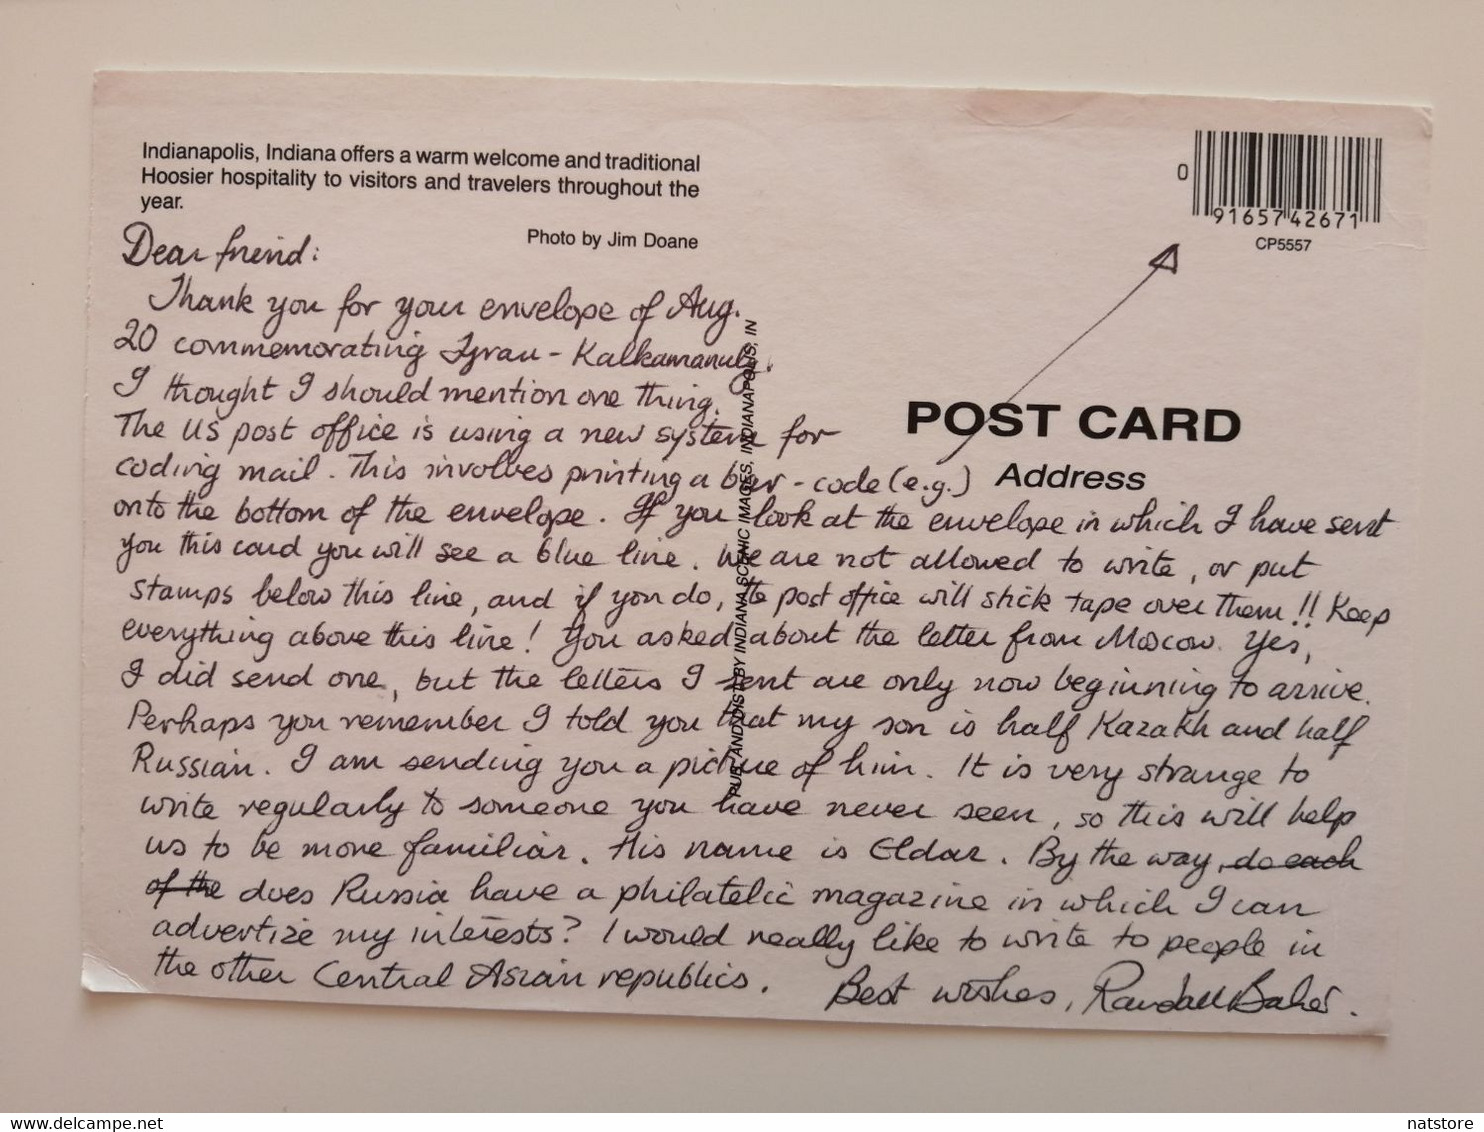 Indianapolis, Indiana offers a warm welcome and traditional
Hoosier hospitality to visitors and travelers throughout the
year.
Photo by Jim Doane
0
91657 42671
CP5557
POST CARD
Address
PUB. AND DIST. BY INDIANA SCENIC IMAGES, INDIANAPOLIS, IN
Dear friend:
Thank you for your envelope of Aug.
20 commemorating
I thought I should mention one thing.
The US post office is using a new system for
coding mail. This involves printing a bar-code (e.g.)
onto the bottom of the envelope. If you look at the envelope in which I have sent
you this card you will see a blue line. We are not allowed to write, or put
stamps below this line, and if you do, the post office will stick tape over them!! Keep
everything above this line! You asked about the letter from Moscow. Yes,
I did send one, but the letters I sent are only now beginning to arrive.
Perhaps you remember I told you that my son is half Kazakh and half
Russian. I am sending you a picture of him. It is very strange to
write regularly to someone you have never seen, so this will help
us to be more familiar. His name is Eldar. By the way, do each
of the does Russia have a philatelic magazine in which I can
advertize my interests? I would really like to write to people in
the other Central Asian republics.
Best wishes, Randall Baker.
delcampe.net
natstore